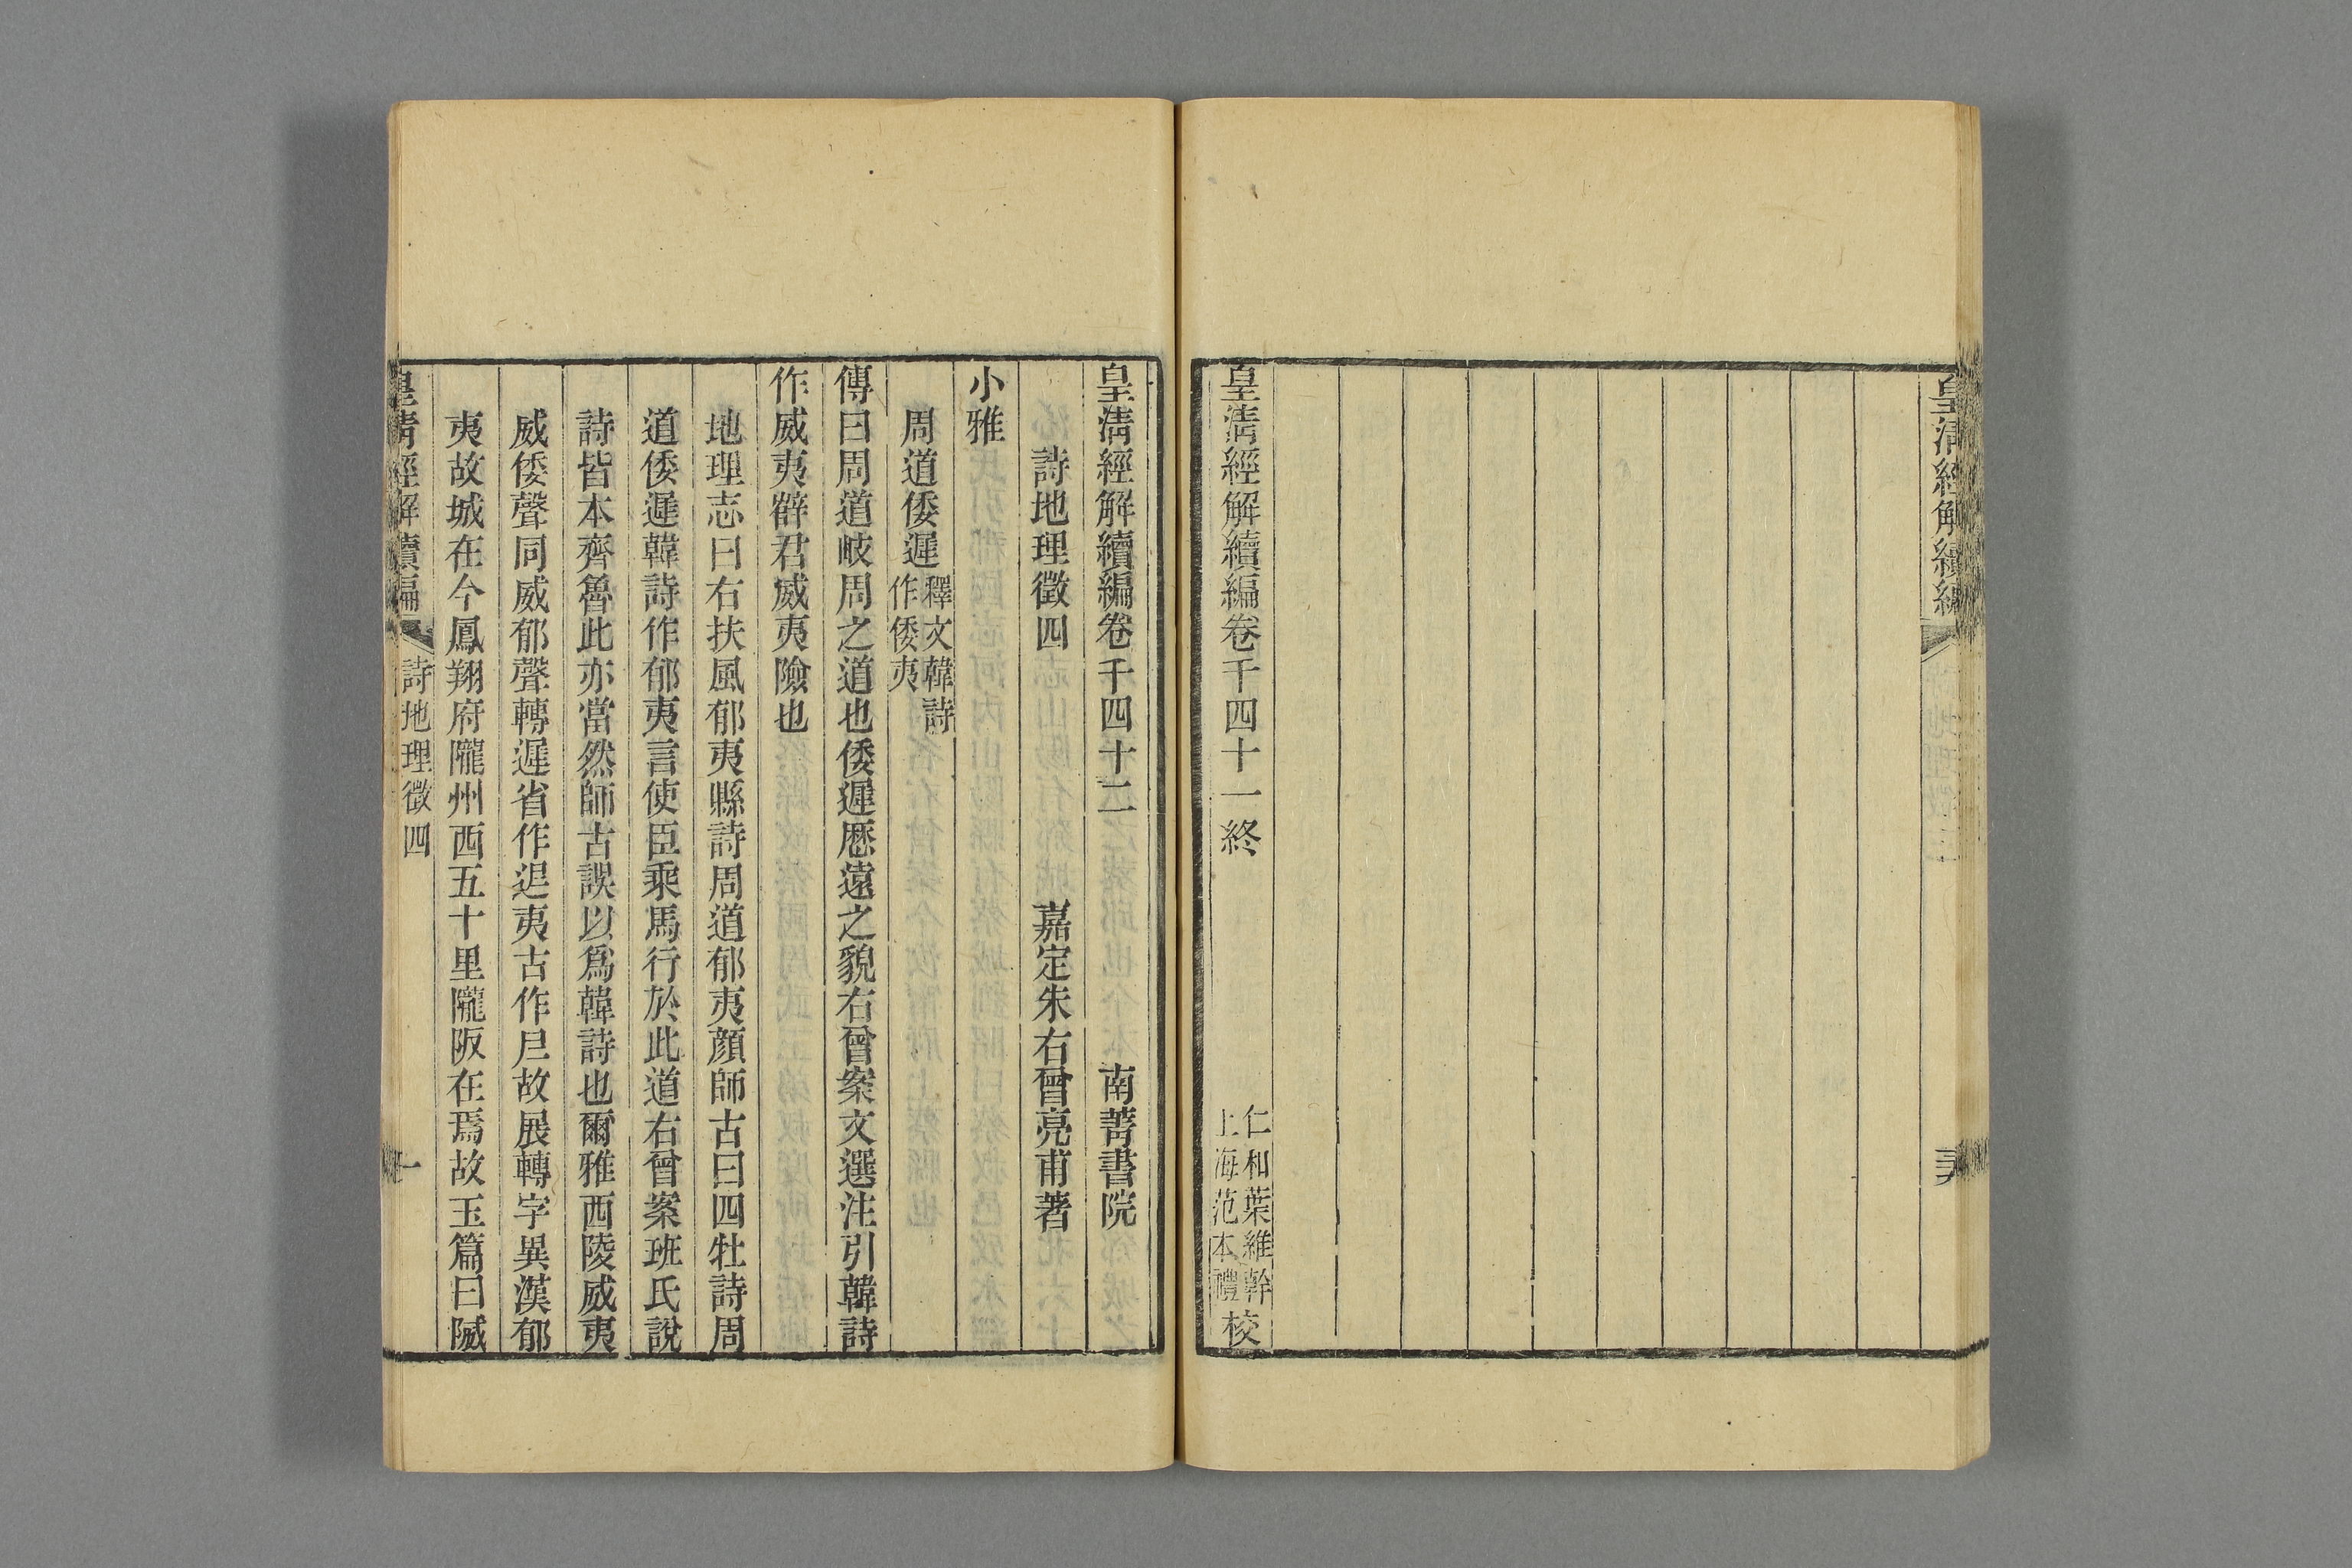 皇清經解續編
皇清經解續編卷千四十一終
仁和葉維幹
上海范本禮
校
皇清經解續編卷千四十二
南菁書院
詩地理徵四
嘉定朱右曾亮甫著
小雅
周道倭遲
釋文韓詩
作倭夷
傳曰周道岐周之道也倭遲厯遠之貌右曾案文選注引韓詩
作威夷薛君威夷險也
地理志曰右扶風郁夷縣詩周道郁夷顏師古曰四牡詩周
道倭遲韓詩作郁夷言使臣乘馬行於此道右曾案班氏說
詩皆本齊魯此亦當然師古誤以爲韓詩也爾雅西陵威夷
威倭聲同威郁聲轉遲省作迟夷古作𡰥故展轉字異漢郁
夷故城在今鳳翔府隴州西五十里隴阪在焉故玉篇曰隇
皇清經解續編
詩地理徵四
一